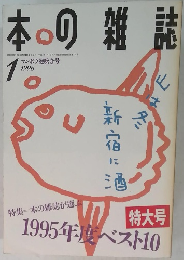 本の雑誌
1
1996
山は冬
新宿に酒
特集=本の雑誌が選ぶ
1995年度ベスト10
特大号